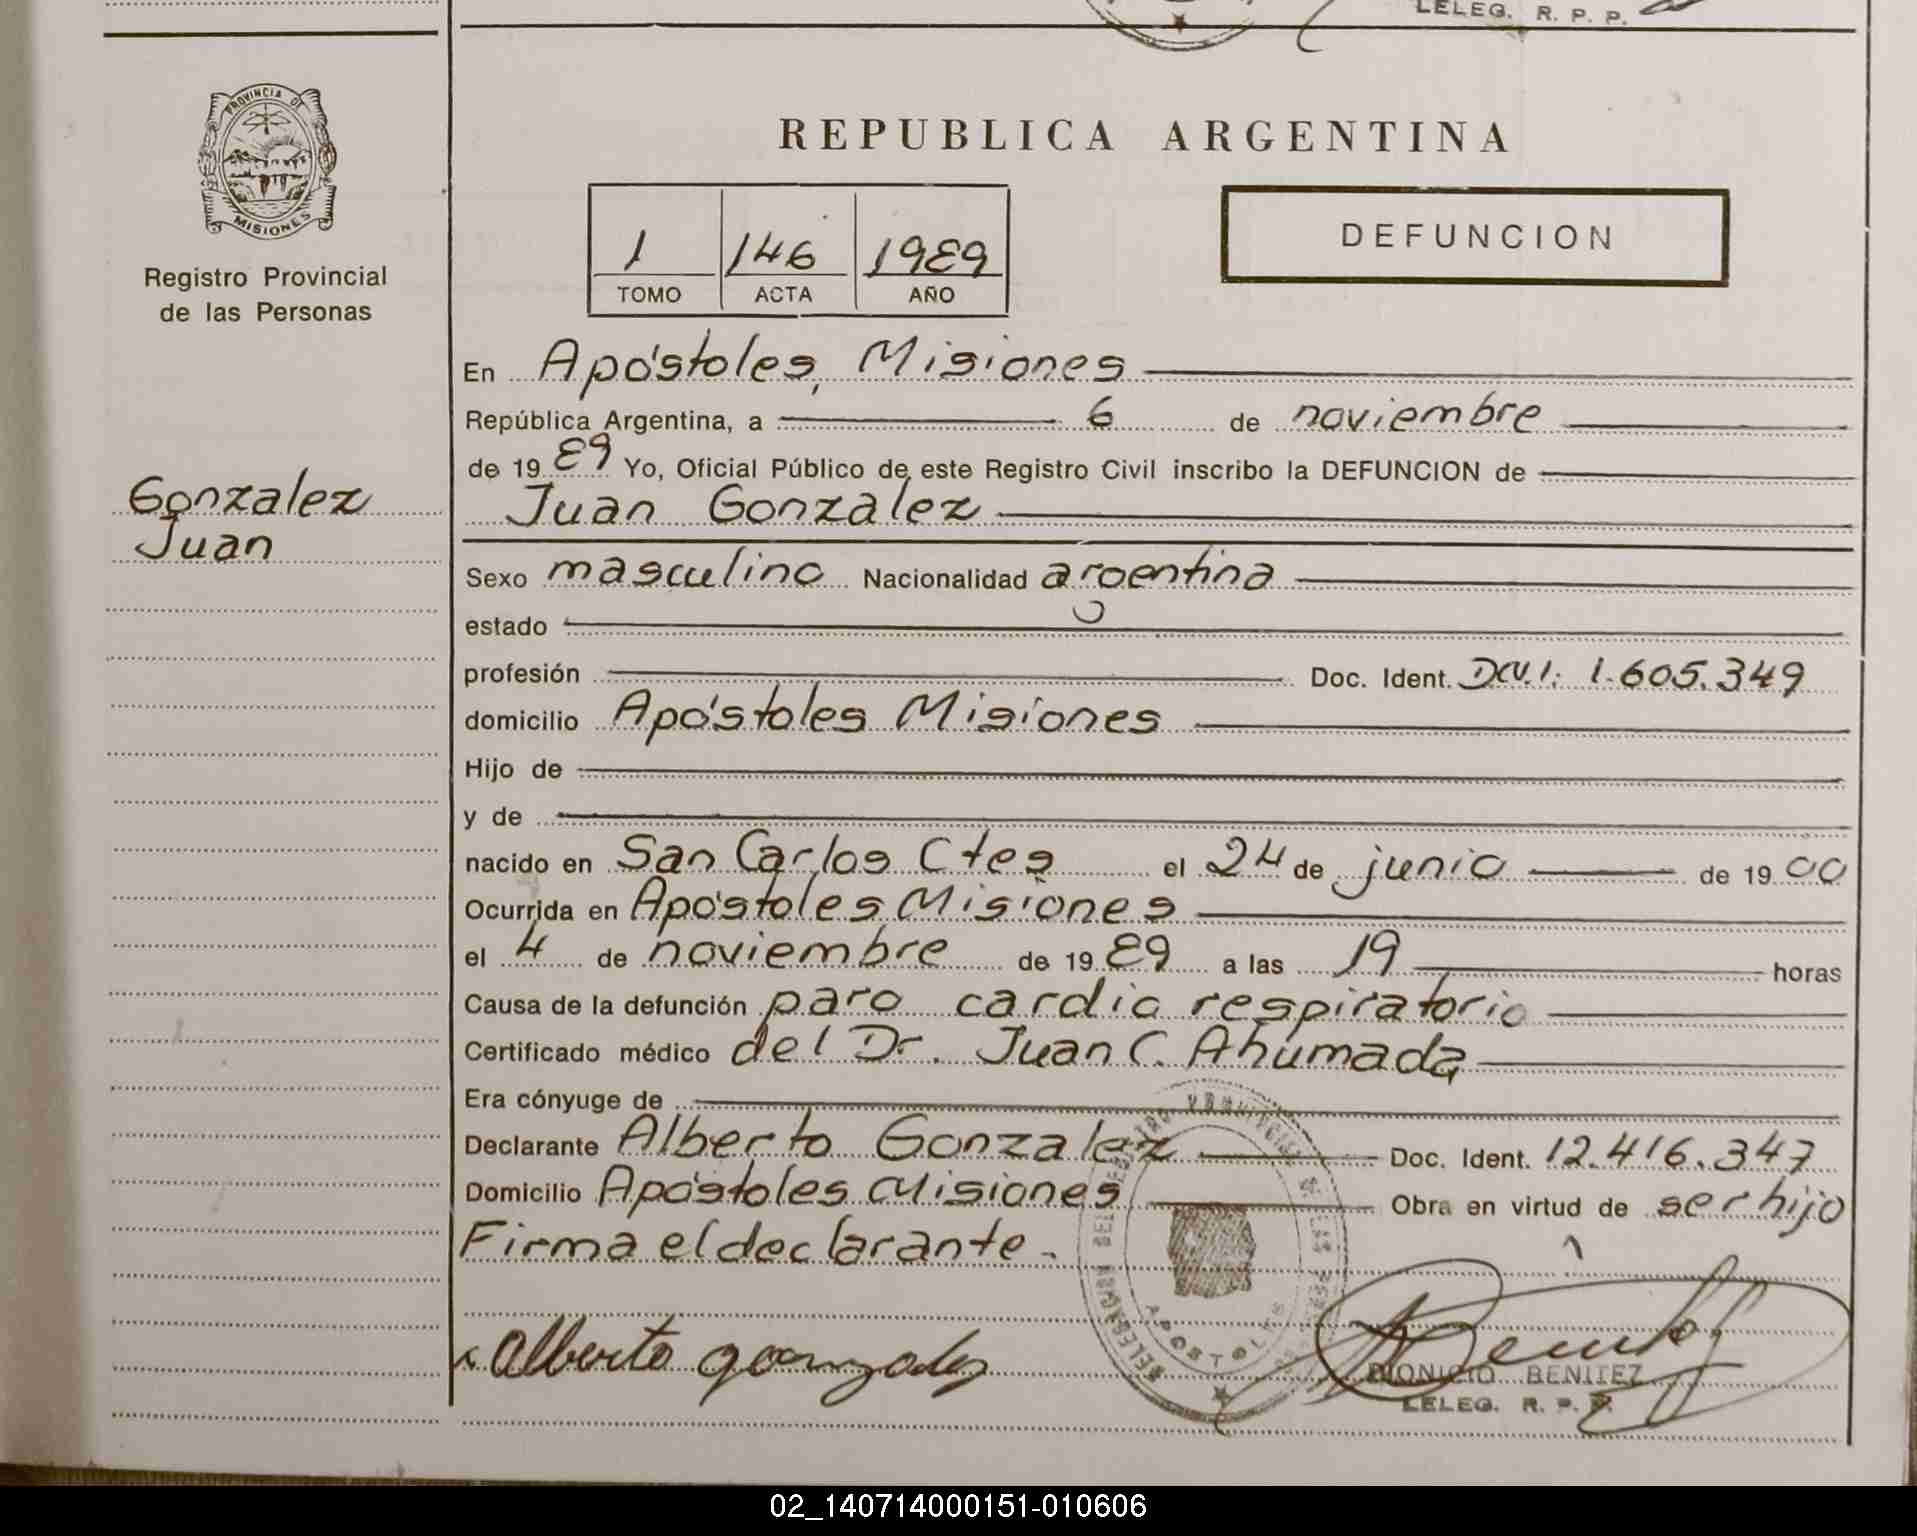 LELEG. R. P. P.
PROVINCIA DE
MISIONES
Registro Provincial
de las Personas
Gonzalez
Juan
REPUBLICA ARGENTINA
1 146 1989
TOMO ACTA AÑO
DEFUNCION
En Apóstoles, Misiones
República Argentina, a 6 de noviembre
de 19 89 Yo, Oficial Público de este Registro Civil inscribo la DEFUNCION de
Juan Gonzalez
Sexo masculino Nacionalidad argentina
estado
profesión Doc. Ident. D.N.I. 1.605.349
domicilio Apóstoles Misiones
Hijo de
y de
nacido en San Carlos Ctes el 24 de junio de 19 00
Ocurrida en Apóstoles Misiones
el 4 de noviembre de 19 89 a las 19 horas
Causa de la defunción paro cardio respiratorio
Certificado médico del Dr. Juan C. Ahumada
Era cónyuge de
Declarante Alberto Gonzalez Doc. Ident. 12.416.347
Domicilio Apóstoles Misiones Obra en virtud de ser hijo
Firma el declarante.
Alberto gonzalez
APOSTOLES
DIONICIO BENITEZ
LELEG. R. P. P.
02_140714000151-010606